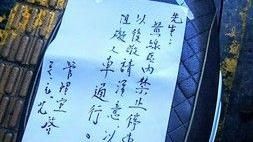 先生：
黃線區內禁止停車
以後敬請注意以
阻礙人車通行。
管理室